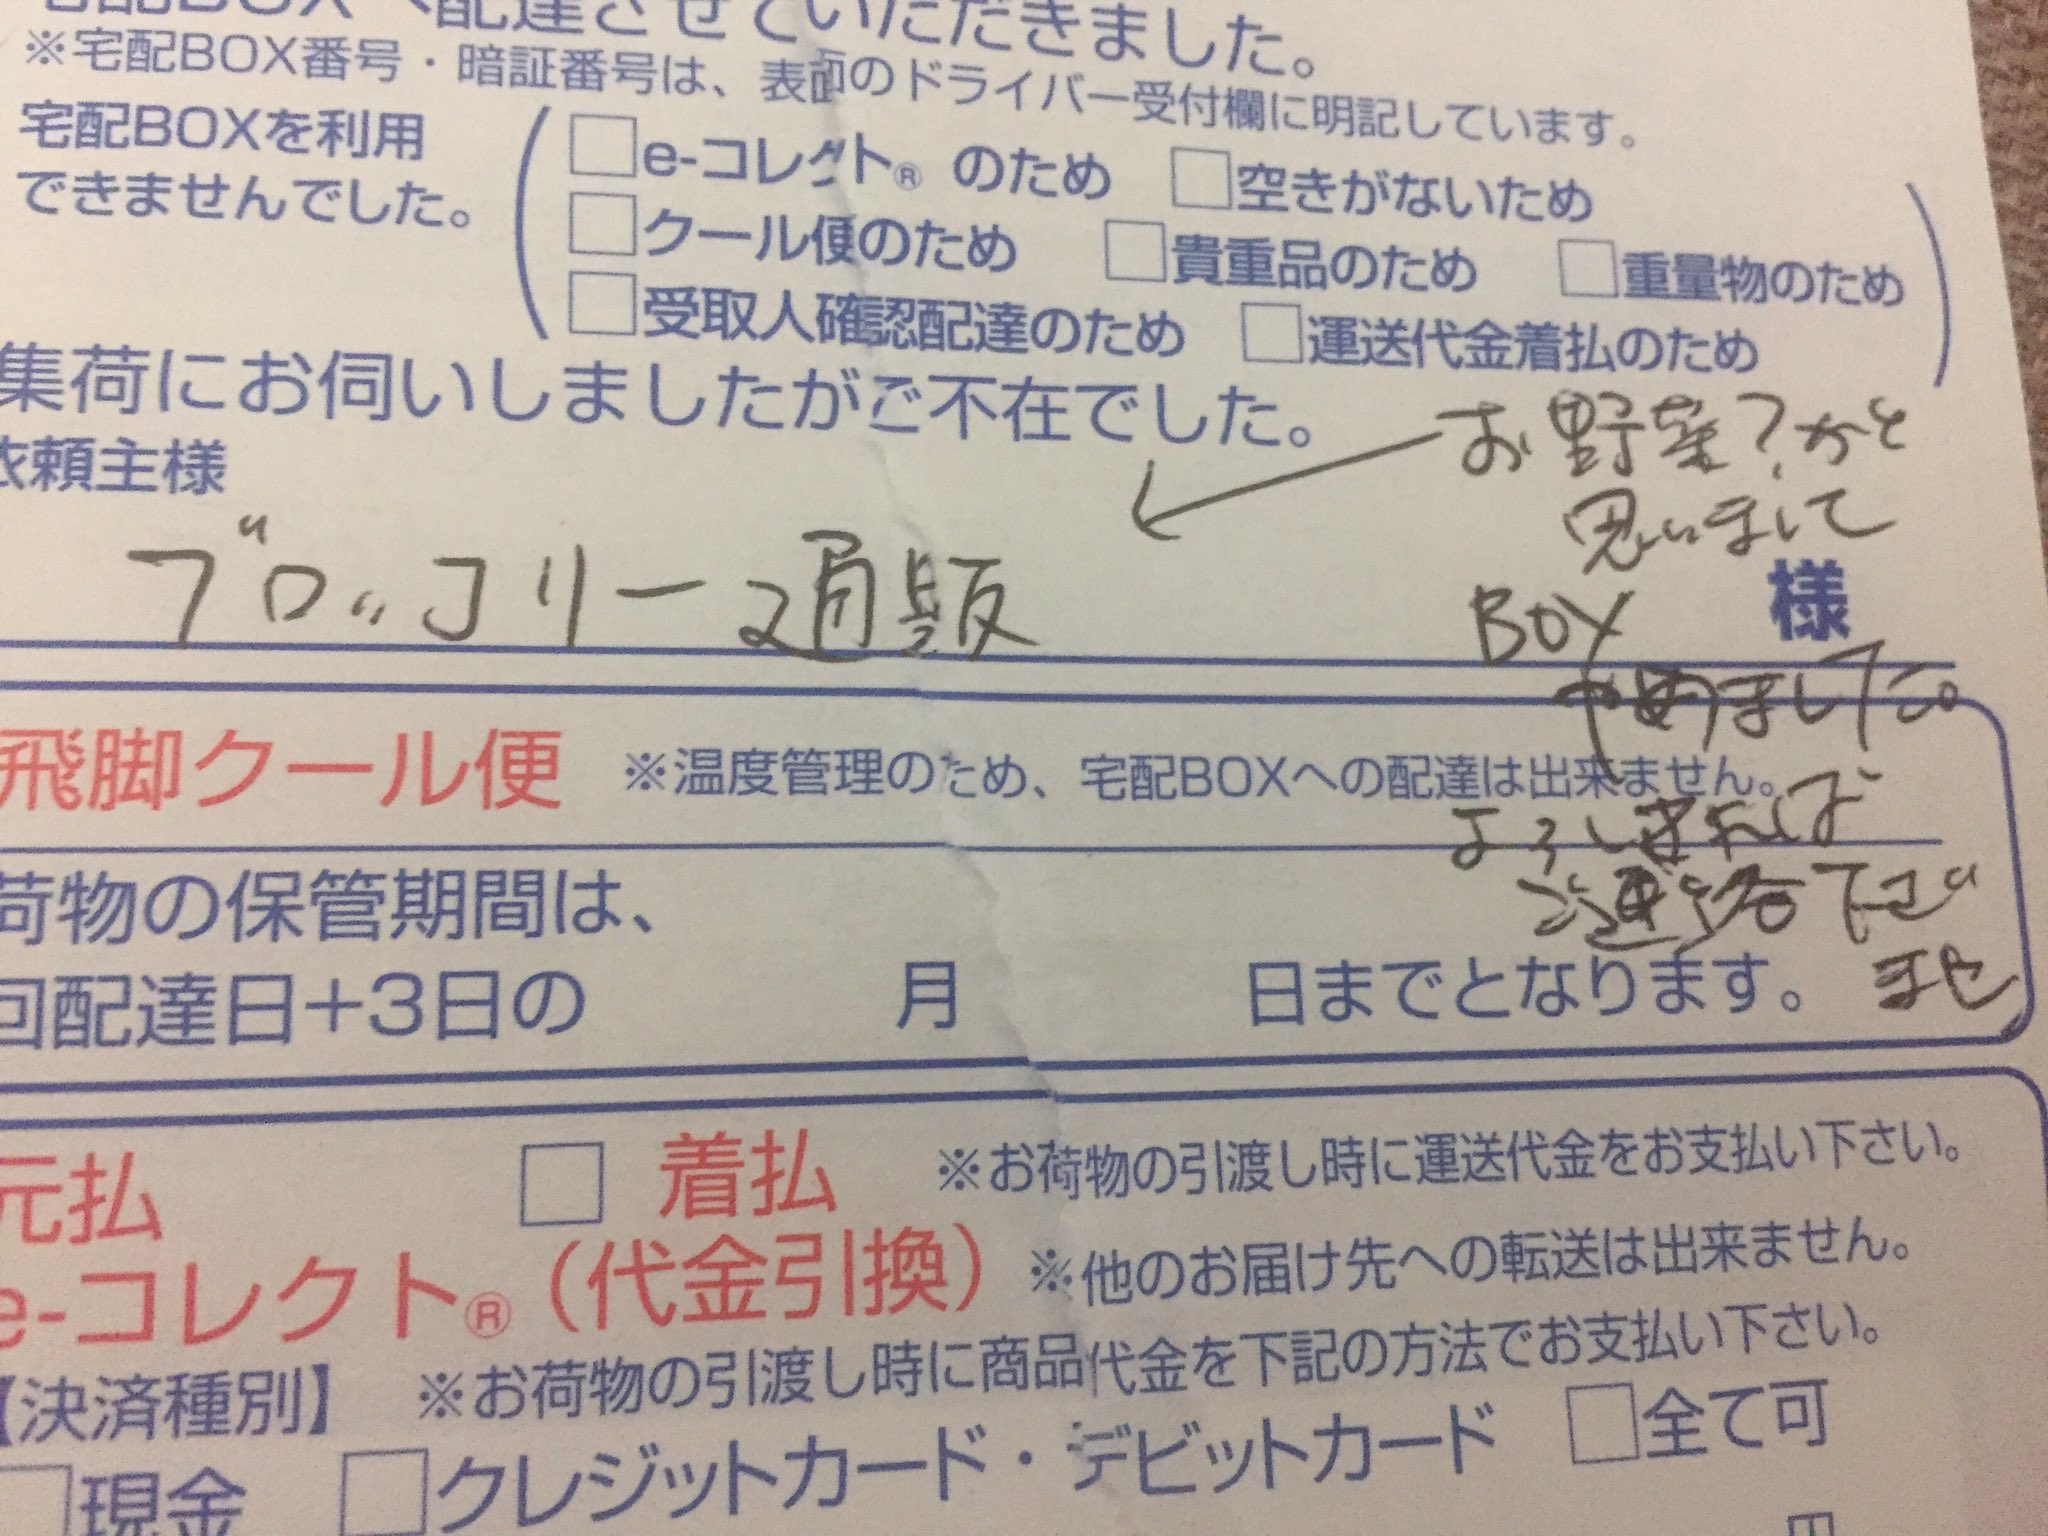 宅配BOXへ配達させていただきました。
※宅配BOX番号・暗証番号は、表面のドライバー受付欄に明記しています。
宅配BOXを利用
できませんでした。
□e-コレクト® のため □空きがないため
□クール便のため □貴重品のため □重量物のため
□受取人確認配達のため □運送代金着払のため
集荷にお伺いしましたがご不在でした。
依頼主様
ブロッコリー通販
様
お野菜?かと
思いまして
BOX
やめました。
よろしければ
ご連絡下さい
ませ
飛脚クール便 ※温度管理のため、宅配BOXへの配達は出来ません。
荷物の保管期間は、
回配達日+3日の 月 日までとなります。
元払 □ 着払 ※お荷物の引渡し時に運送代金をお支払い下さい。
e-コレクト®(代金引換) ※他のお届け先への転送は出来ません。
【決済種別】 ※お荷物の引渡し時に商品代金を下記の方法でお支払い下さい。
□現金 □クレジットカード・デビットカード □全て可
円